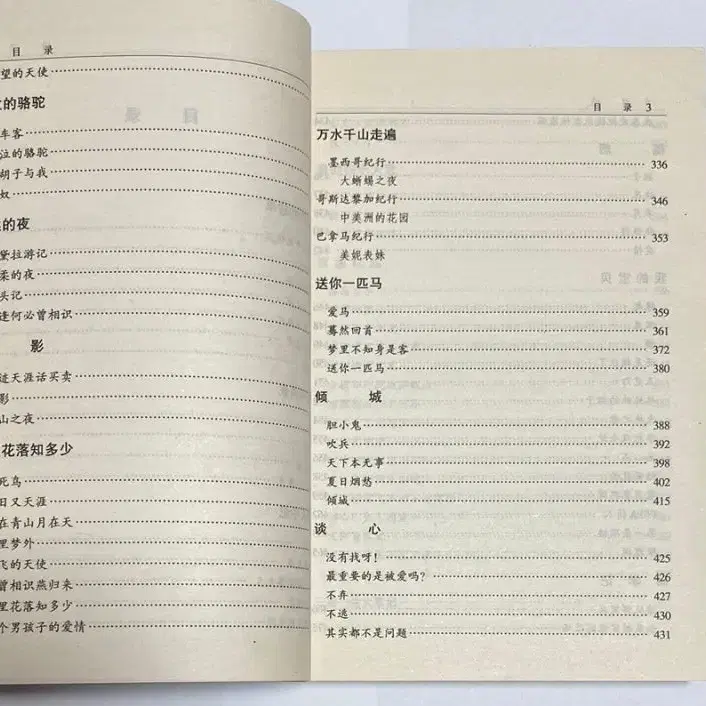 目 录
望的天使
的骆驼
车客
泣的骆驼
胡子与我
奴
的夜
黛拉游记
柔的夜
头记
逢何必曾相识
影
天涯话买卖
影
山之夜
花落知多少
死鸟
日又天涯
在青山月在天
里梦外
飞的天使
曾相识燕归来
里花落知多少
个男孩子的爱情
目 录 3
万水千山走遍
墨西哥纪行 336
大蜥蜴之夜
哥斯达黎加纪行 346
中美洲的花园
巴拿马纪行 353
美妮表妹
送你一匹马
爱马 359
蓦然回首 361
梦里不知身是客 372
送你一匹马 380
倾 城
胆小鬼 388
吹兵 392
天下本无事 398
夏日烟愁 402
倾城 415
谈 心
没有找呀！ 425
最重要的是被爱吗？ 426
不弃 427
不逃 430
其实都不是问题 431